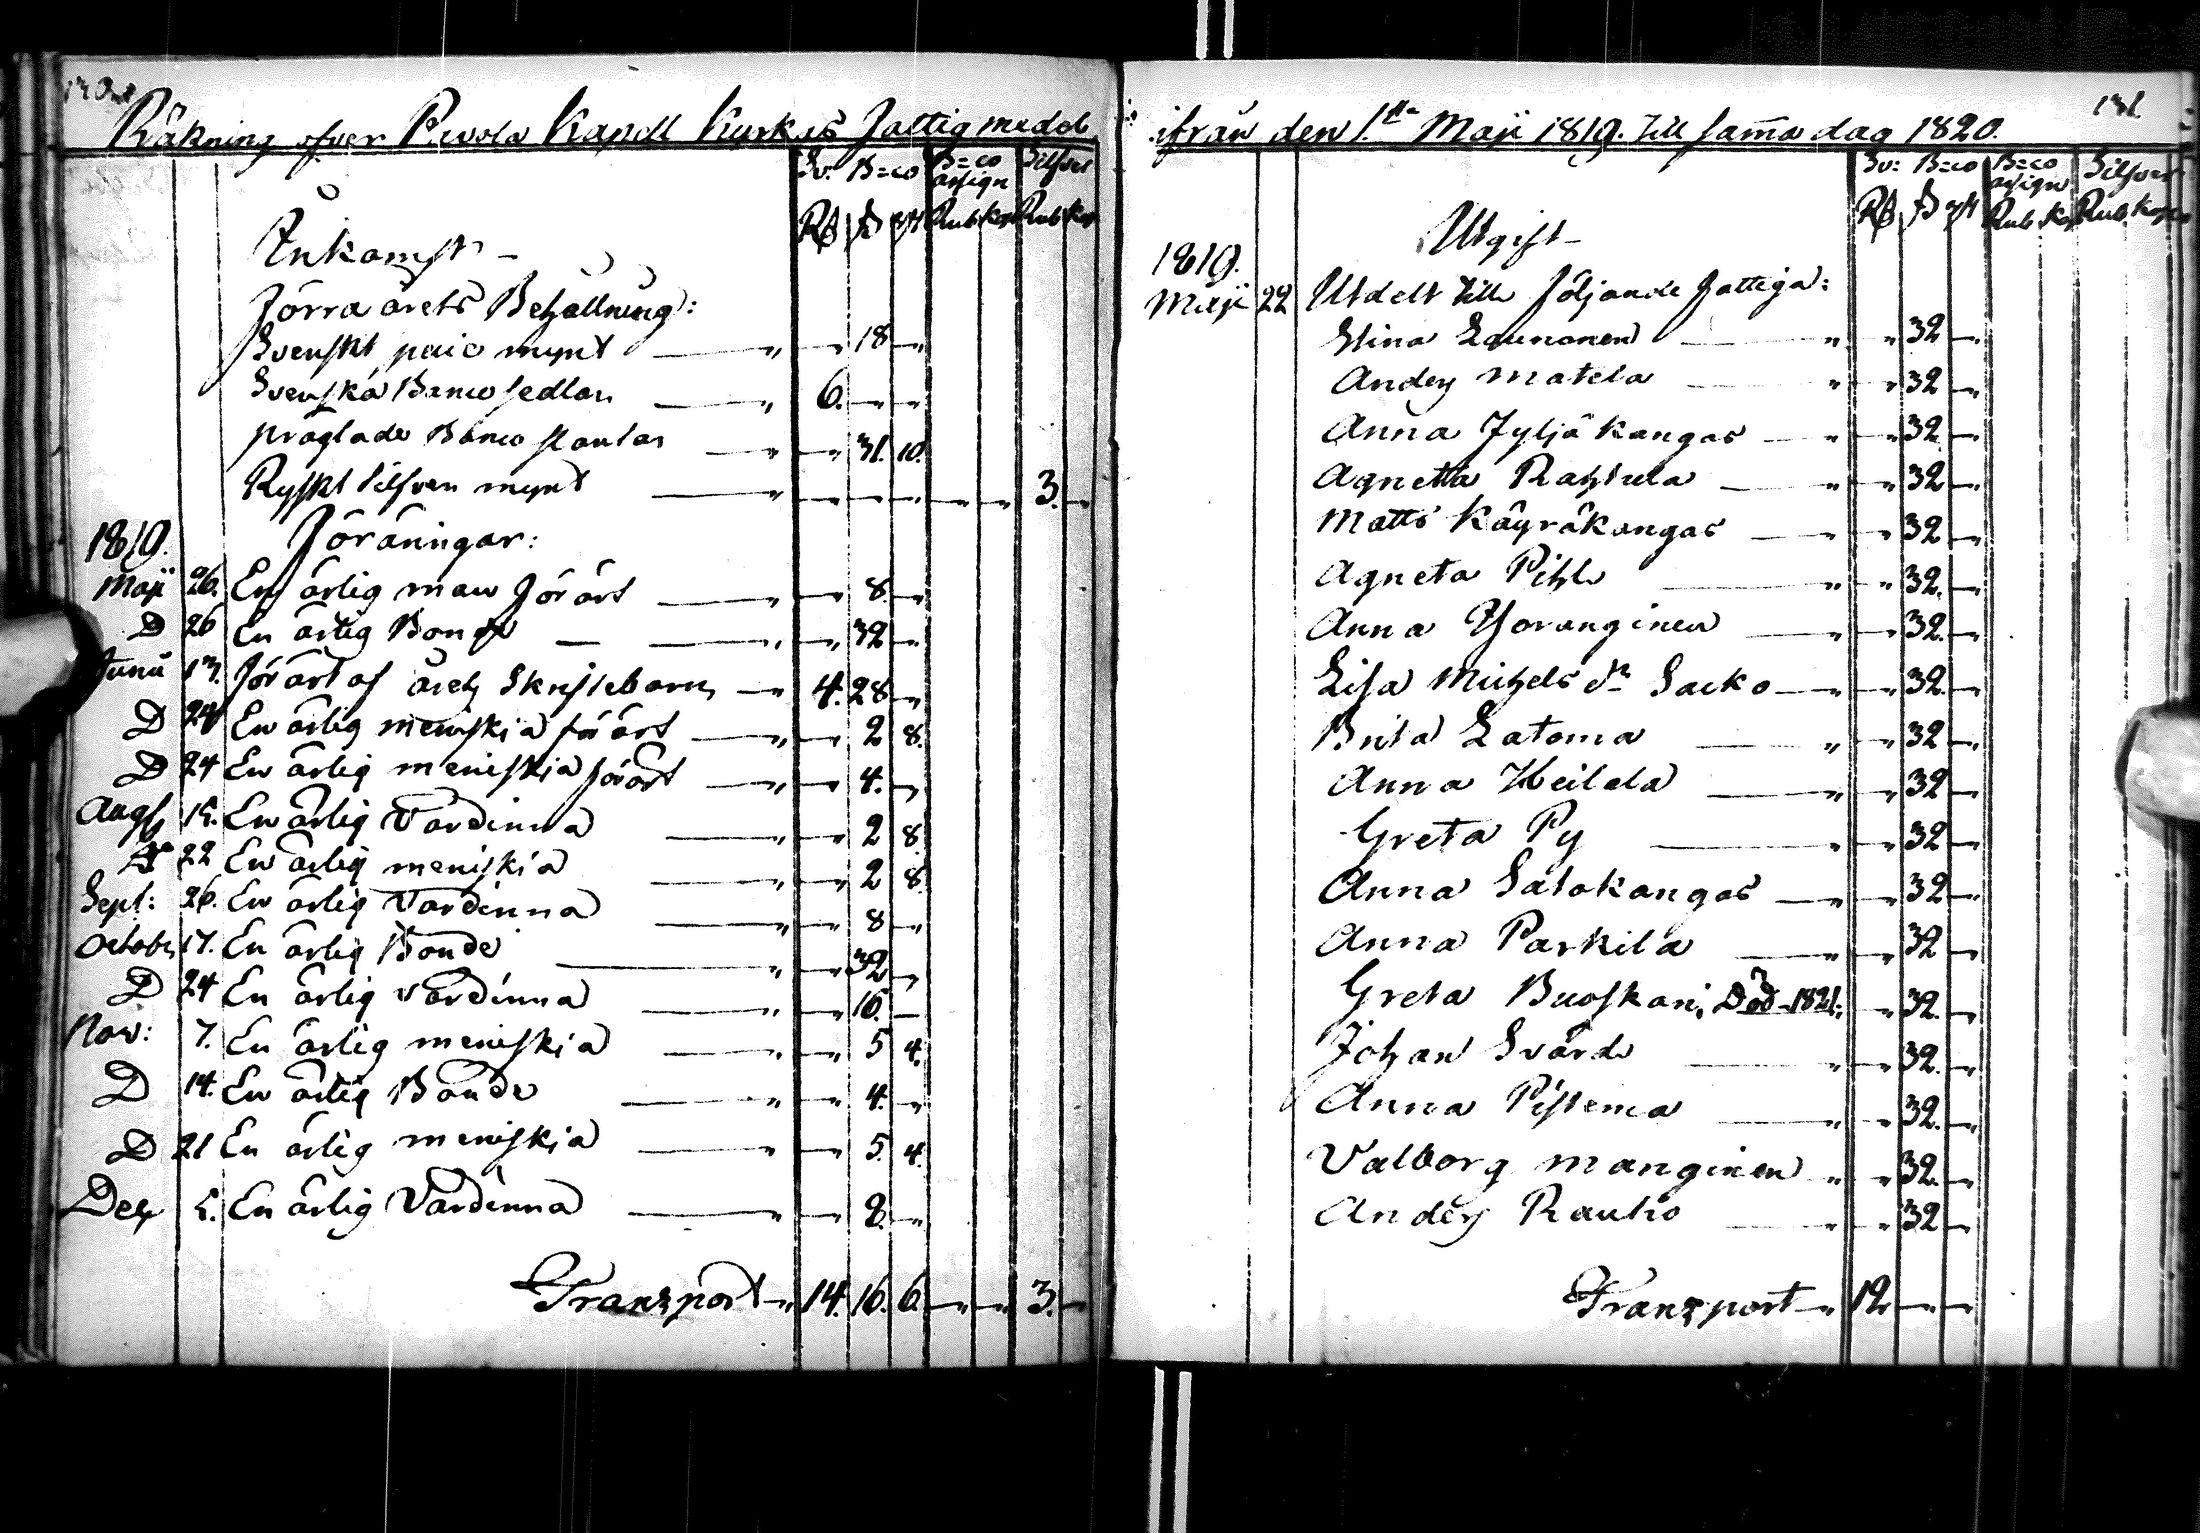 130.
Räkning öfver Pwola Kapell Kyrkas Fattig medel
Sv: B=co B=co assign Silfver
Rd ß rst Rub Kop Rub Kop
Inkomst
Förra årets Behållning:
Svenskt paie mynt — „ „ 18 „
Svenska Banco sedlar — „ 6. „ „
präglade Banco slantar — „ „ 31. 10.
Ryskt Silfver mynt — „ „ „ „ „ „ 3. „
1819. Föräningar:
Maji 26. En ärlig man förärt — „ „ 8. „
D 26 En ärlig Bonde — „ „ 32 „
Junii 13. Förärt af årets Skriftebarn — „ 4. 28 „
D 24 En ärlig meniskia förärt — „ „ 2 8.
D 24 En ärlig meniskia förärt — „ „ 4. „
Aug 15. En ärlig Värdinna — „ „ 2 8.
D 22 En ärlig meniskia — „ „ 2 8.
Sept: 26. En ärlig Värdinna — „ „ 8 „
October 17. En ärlig Bonde — „ „ 32 „
D 24 En ärlig värdinna — „ „ 16. „
Nov: 7. En ärlig meniskia — „ „ 5 4.
D 14. En ärlig Bonde — „ „ 4. „
D 21 En ärlig meniskia — „ „ 5. 4.
Dec 5. En ärlig Värdinna — „ „ 8. „
Transport „ 14. 16. 6. „ „ 3. „
131.
ifrån den 1.sta Maji 1819. till samma dag 1820.
Sv: B=co B=co assign Silfver
Rd ß rst Rub Kop Rub Kop
Utgift
1819.
Maji 22 Utdelt till följande fattiga:
Stina Launonen — „ „ 32 „
Anders Matela — „ „ 32 „
Anna Jyljäkangas — „ „ 32 „
Agnetta Rahtula — „ „ 32 „
Matts Käyräkangas — „ „ 32 „
Agneta Pihl — „ „ 32. „
Anna Yoranginen — „ „ 32. „
Lisa Michelsdr Sacko — „ „ 32. „
Brita Latoma — „ „ 32 „
Anna Heilala — „ „ 32 „
Greta Py — „ „ 32 „
Anna Salokangas — „ „ 32 „
Anna Parkila — „ „ 32 „
Greta Buoskari, Död 1821. „ „ 32. „
Johan Svärd — „ „ 32. „
Anna Pistema — „ „ 32. „
Valborg Manginen „ „ 32. „
Anders Rautio — „ „ 32 „
Transport „ 12 „ „